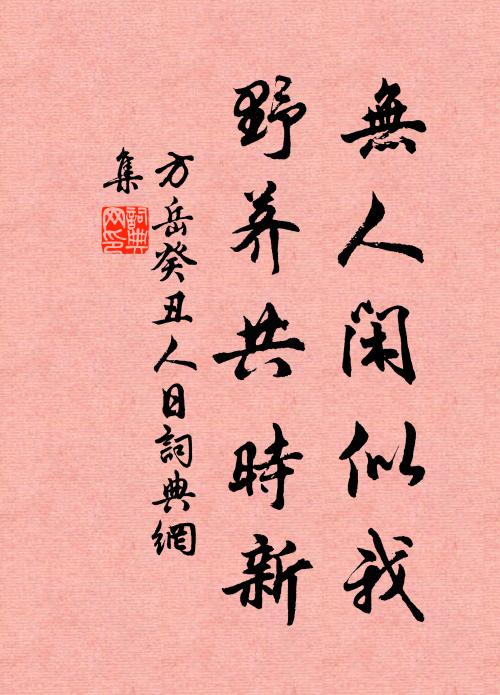 無人閑似我
野荞共時新
方岳癸丑人日詞典網
集
詞典
网印